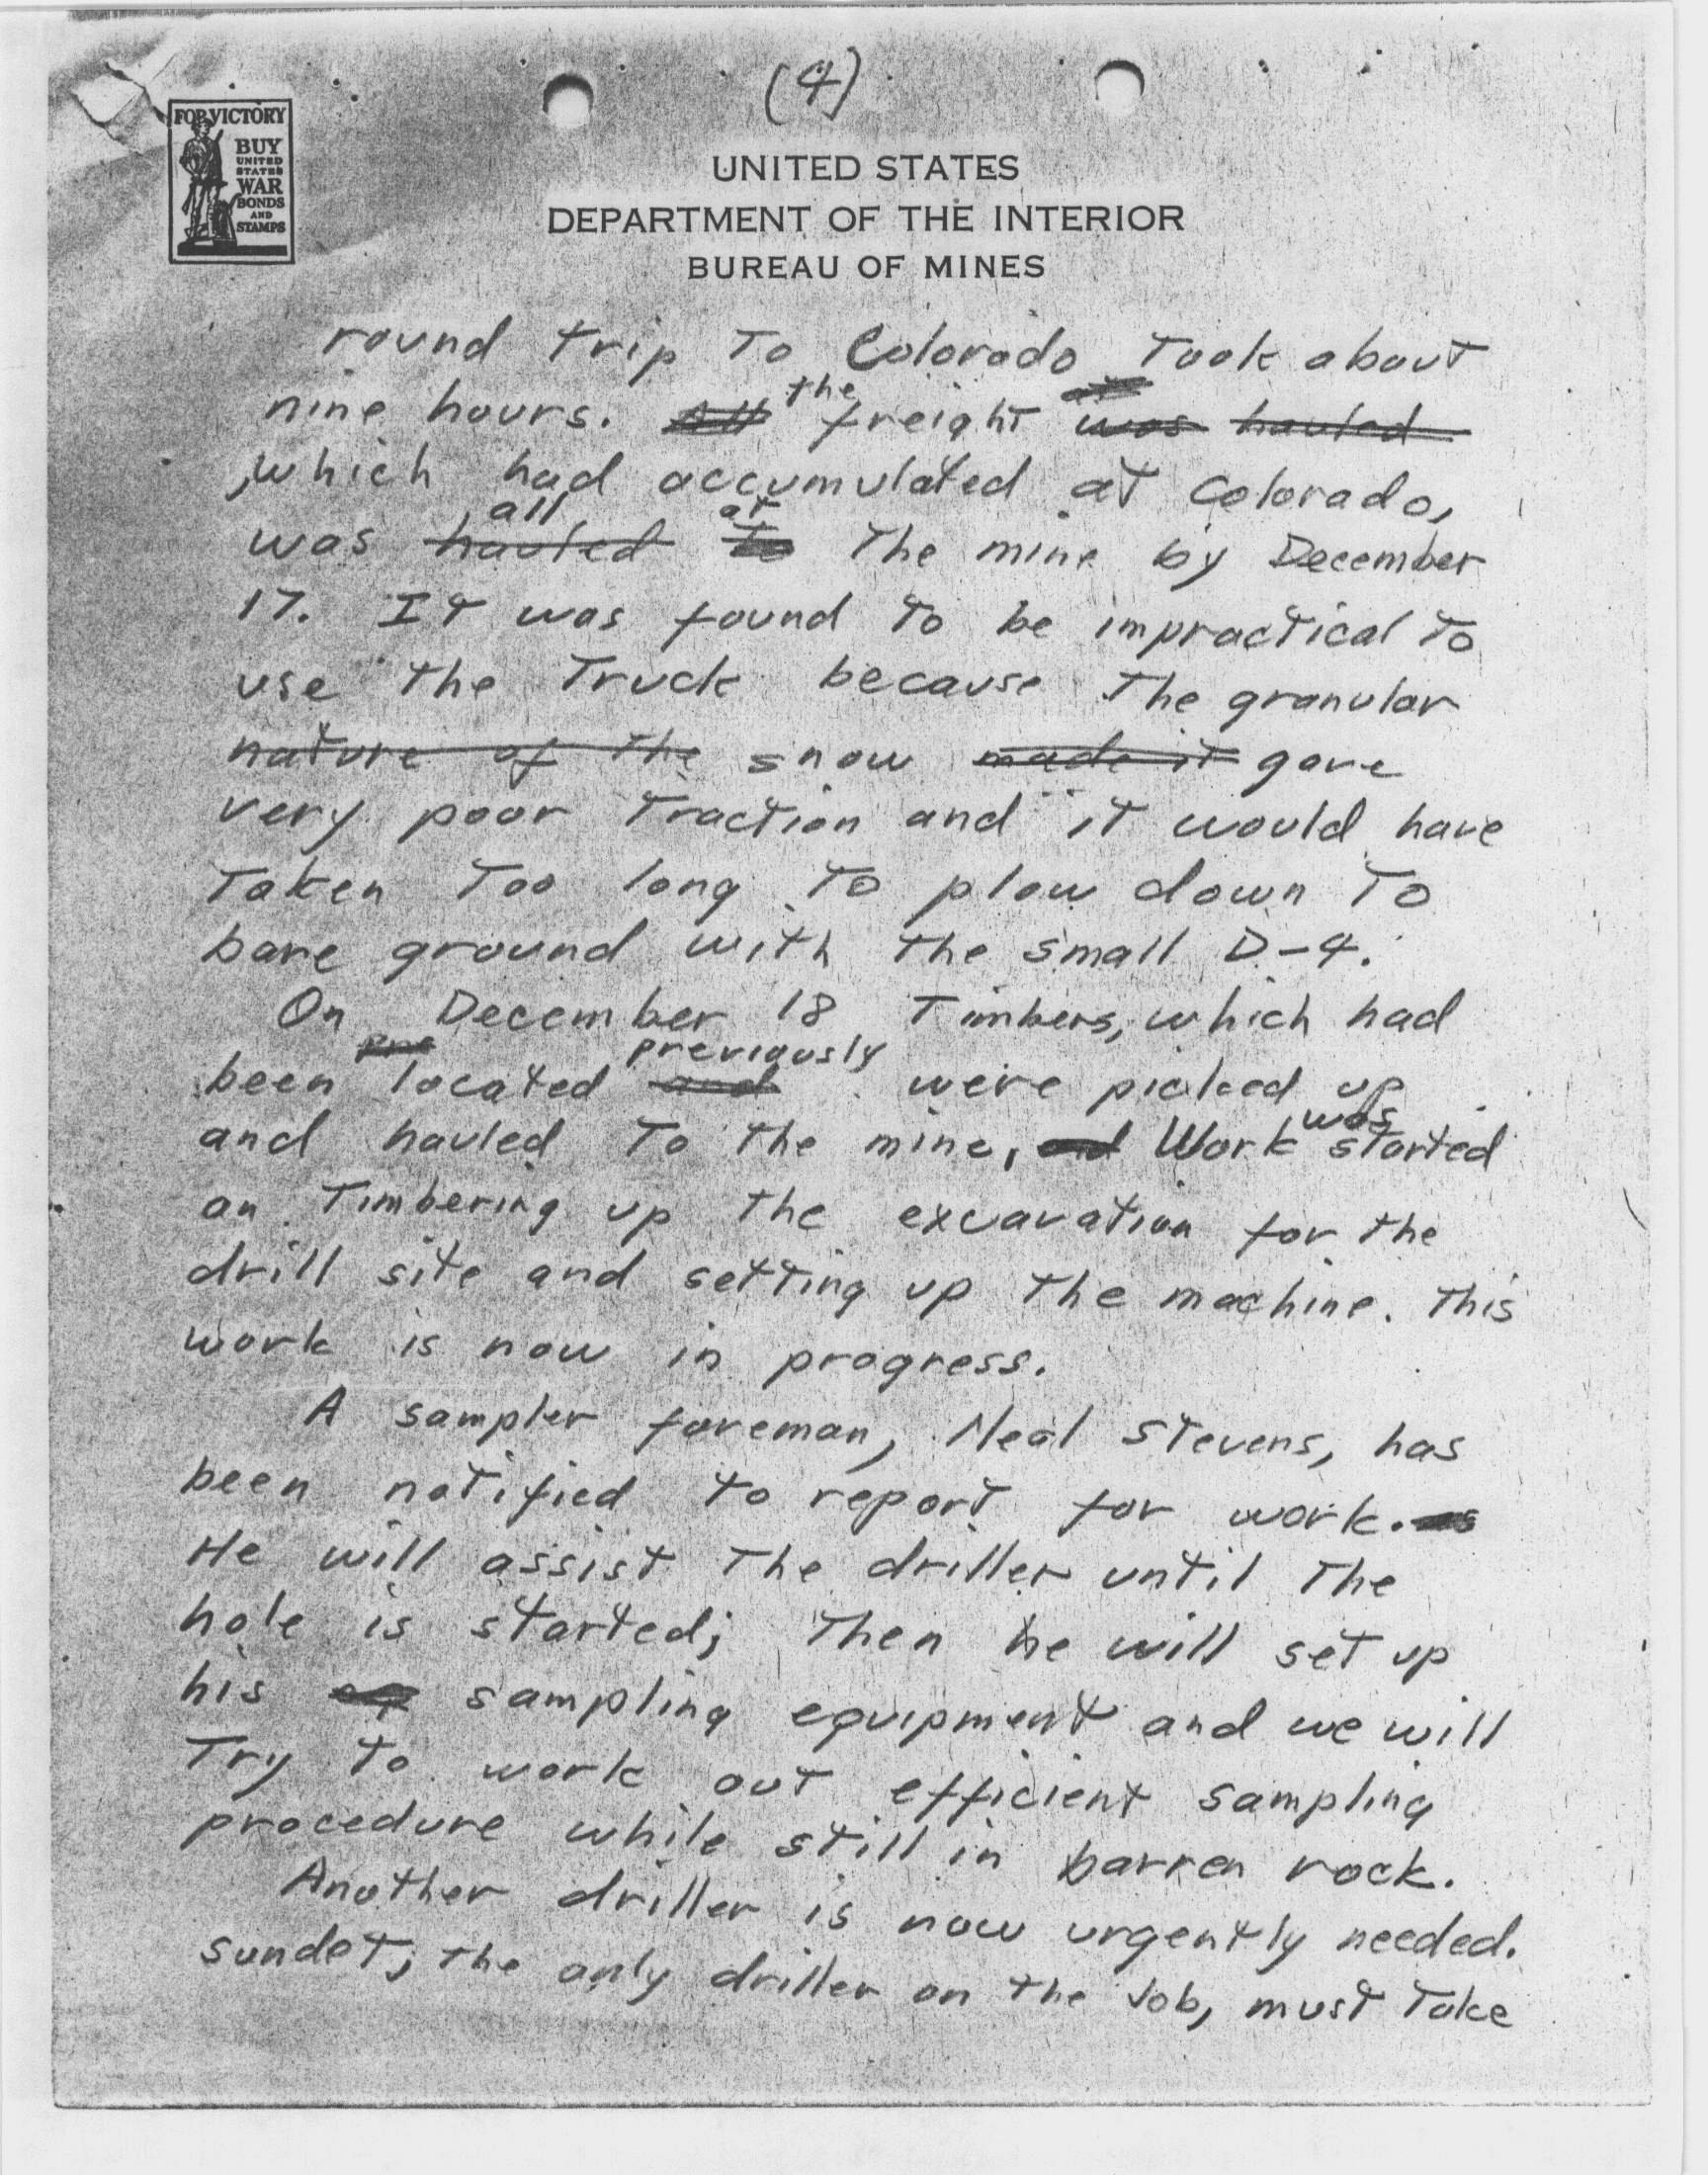 (4)
FOR VICTORY
BUY
UNITED
STATES
WAR
BONDS
AND
STAMPS
UNITED STATES
DEPARTMENT OF THE INTERIOR
BUREAU OF MINES
round trip to Colorado took about
nine hours. All the freight was hauled
, which had accumulated at Colorado,
was hauled all to at the mine by December
17. It was found to be impractical to
use the truck because the granular
nature of the snow made it gave
very poor traction and it would have
taken too long to plow down to
bare ground with the small D-4.
On December 18 timbers, which had
been pre located and previously were picked up
and hauled to the mine, and Work was started
on timbering up the excavation for the
drill site and setting up the machine. This
work is now in progress.
A sampler foreman, Neal Stevens, has
been notified to report for work.
He will assist the driller until the
hole is started; then he will set up
his eq sampling equipment and we will
try to work out efficient sampling
procedure while still in barren rock.
Another driller is now urgently needed.
Sundet, the only driller on the job, must take